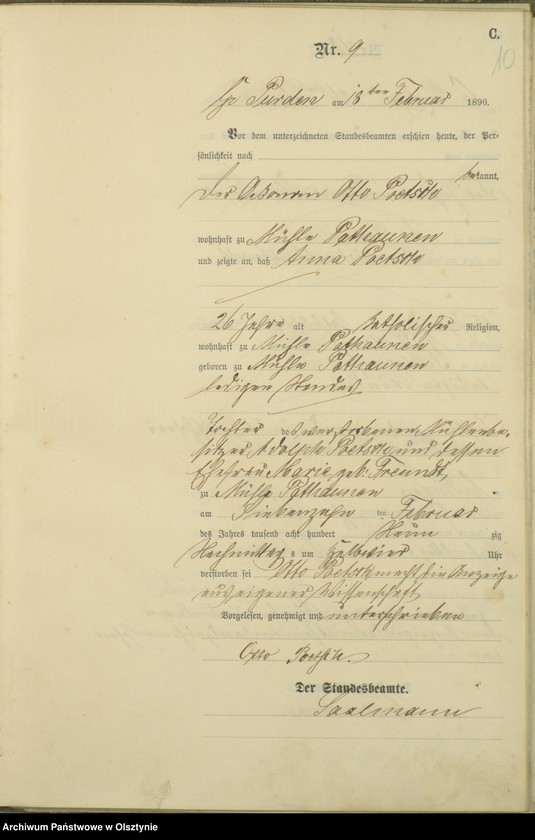 C.
Nr. 9
10
Gr Purden am 18ten Februar 1890.
Vor dem unterzeichneten Standesbeamten erschien heute, der Per-
sönlichkeit nach
bekannt,
Der Oekonom Otto Poetsch
wohnhaft zu Mühle Pathaunen
und zeigte an, daß Anna Poetsch
26 Jahre alt katholischer Religion,
wohnhaft zu Mühle Pathaunen
geboren zu Mühle Pathaunen
ledigen Standes
Tochter des verstorbenen Mühlenbe-
sitzer Adolph Poetsch und dessen
Ehefrau Marie geb. Freundt,
zu Mühle Pathaunen
am Siebenzehn ten Februar
des Jahres tausend acht hundert Neun zig
Nachmittags um halb vier Uhr
verstorben sei Otto Poetsch macht die Anzeige
aus eigener Wissenschaft
Vorgelesen, genehmigt und unterschrieben
Otto Poetsch.
Der Standesbeamte.
Saalmann
Archiwum Państwowe w Olsztynie